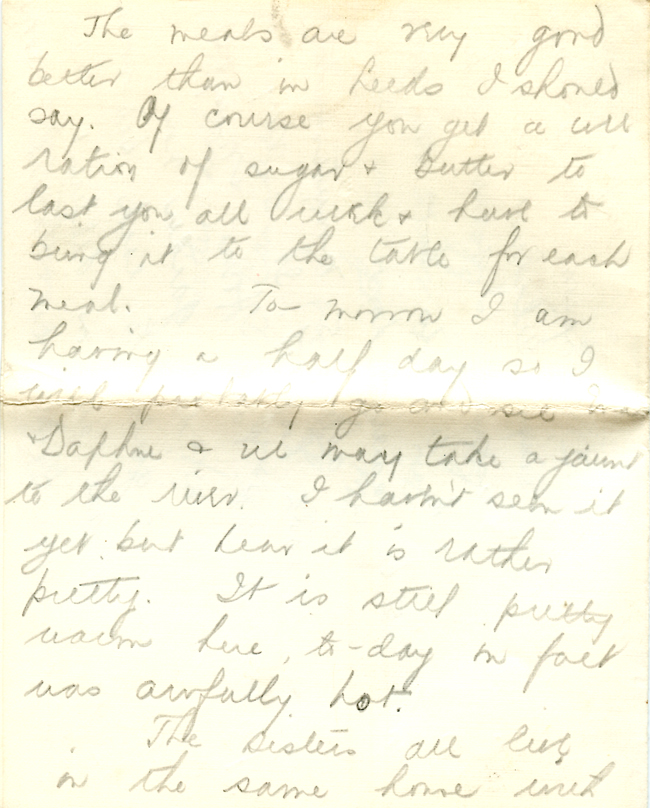 The meals are very good
better than in Leeds I should
say. Of course you get a
ration of sugar & butter to
last you all week & have to
bring it to the table for each
meal. To-morrow I am
having a half day so I
will probably go and see
& Daphne & we may take a jaunt
to the river. I havn't seen it
yet but hear it is rather
pretty. It is still pretty
warm here, to-day in fact
was awfully hot.
The sisters all live
in the same home with